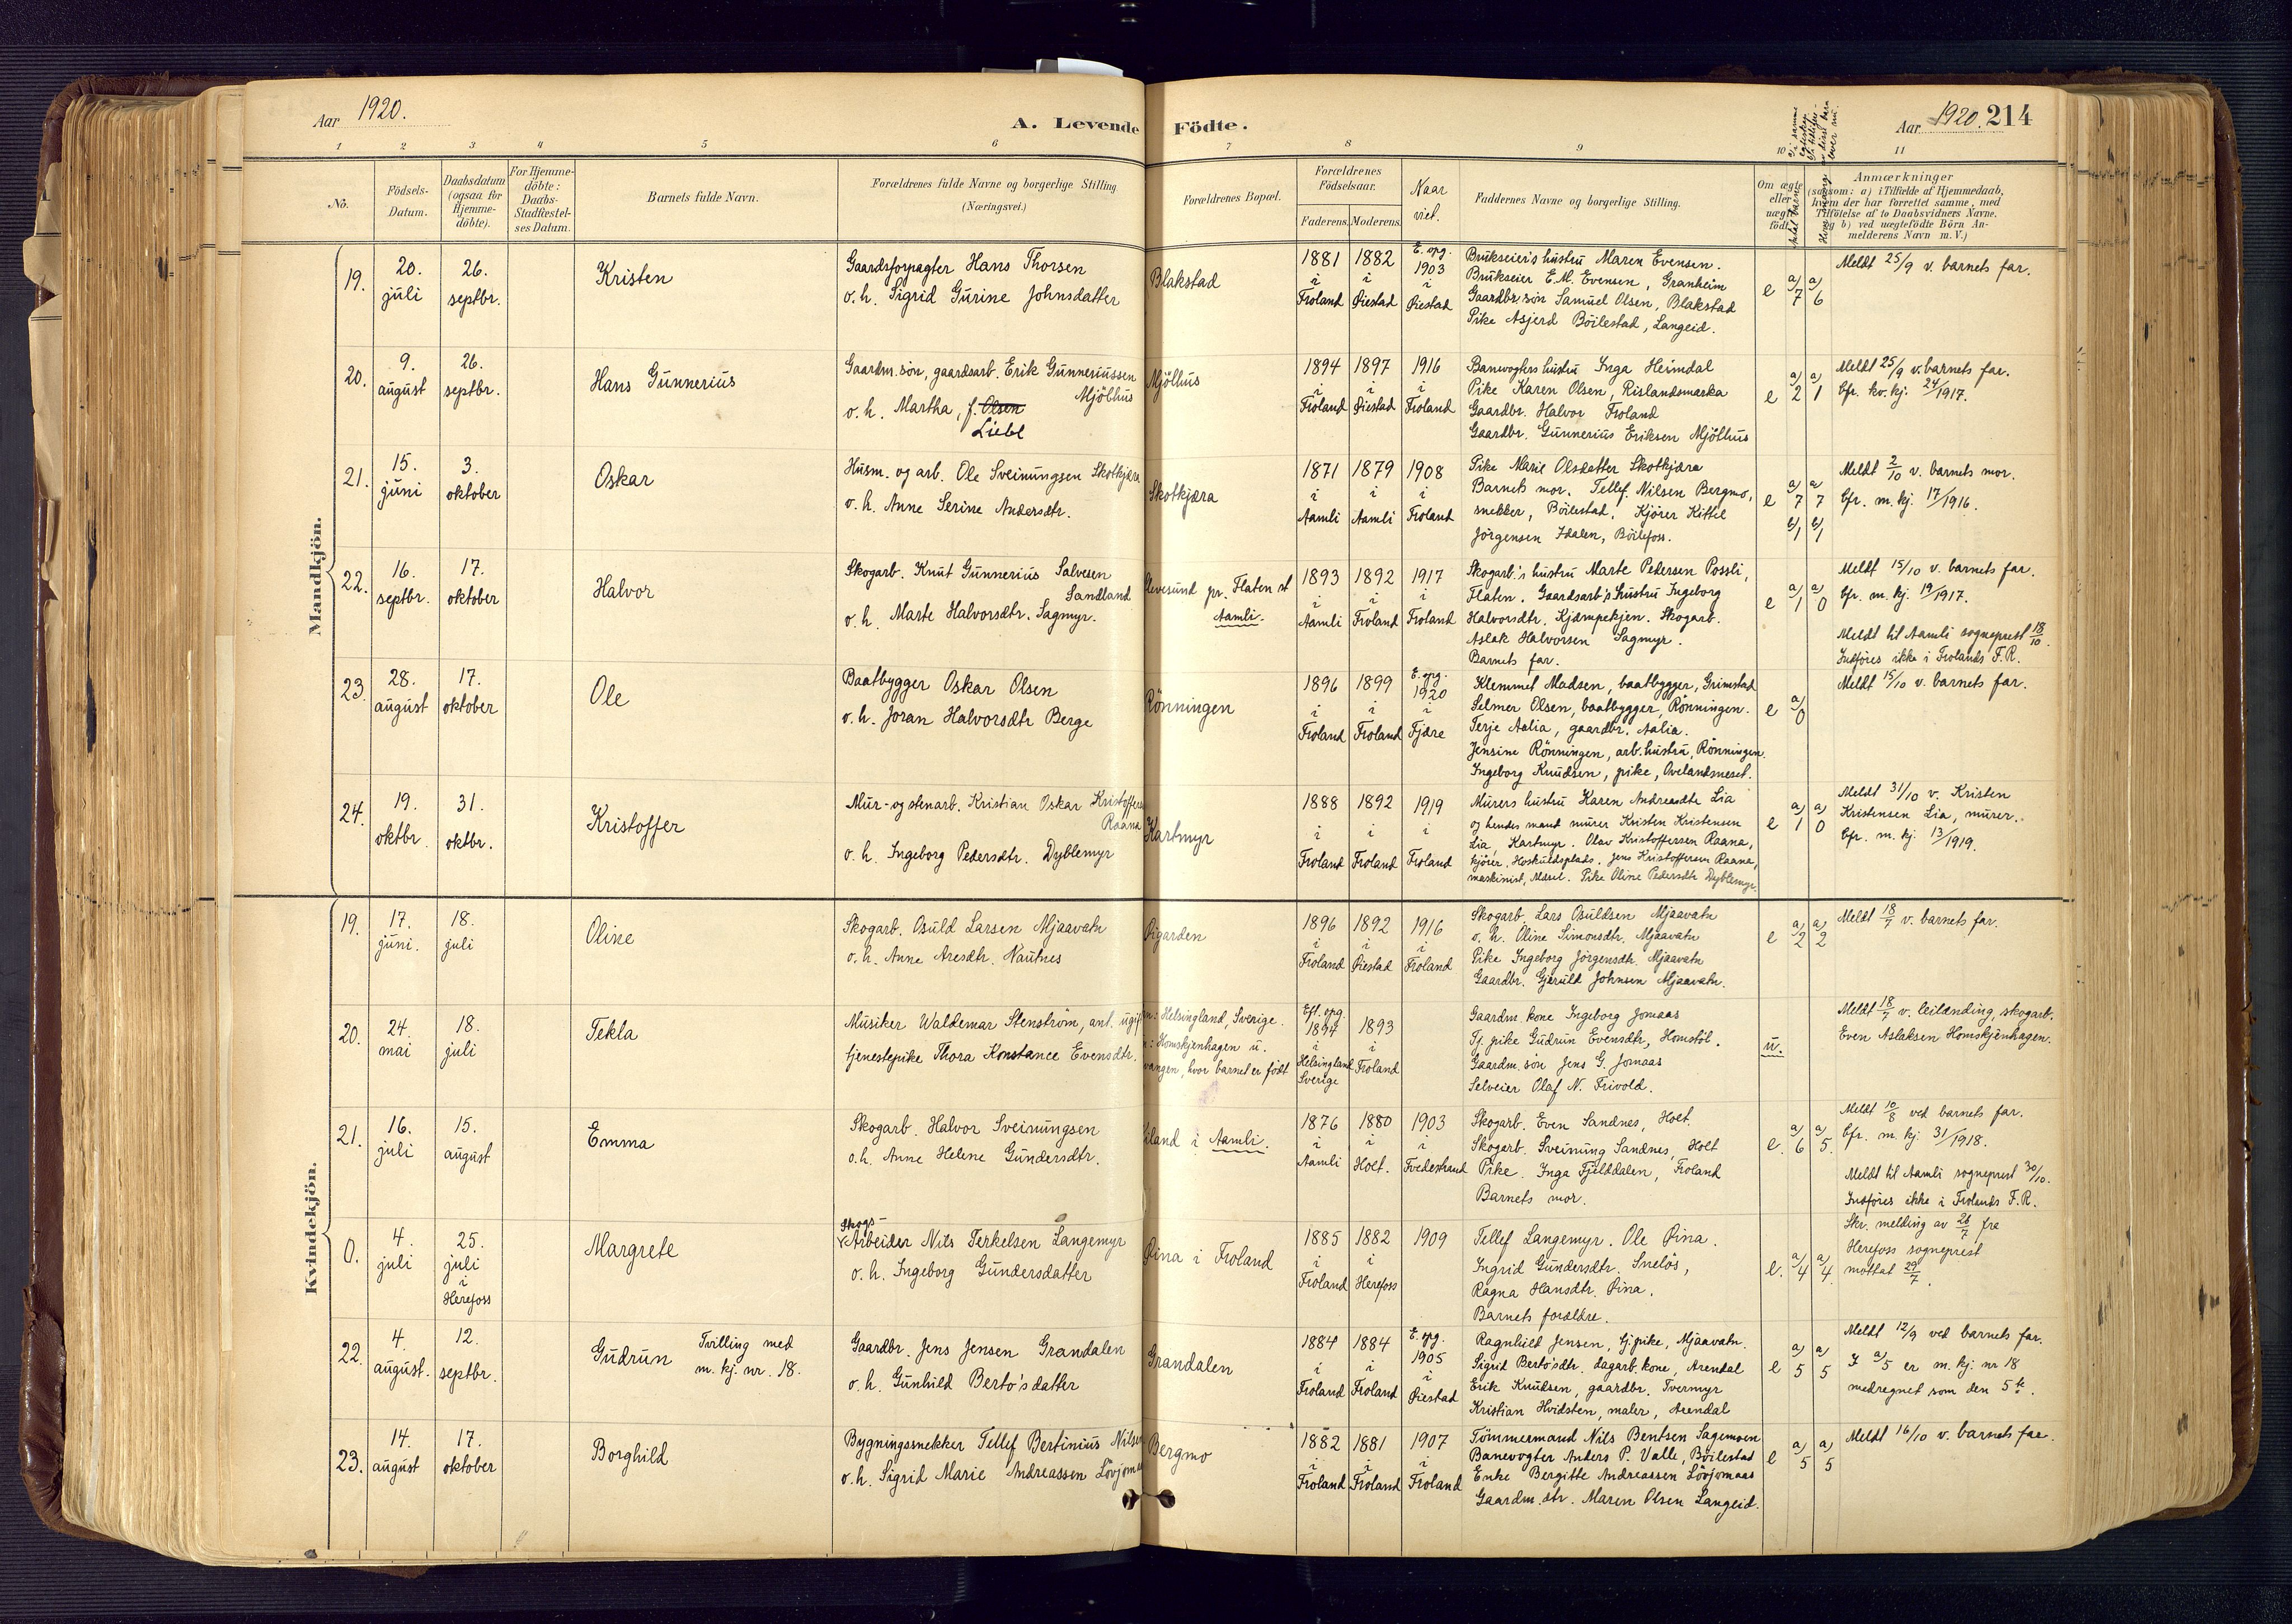 Aar 1920. A. Levende Födte. Aar 1920. 214
1 2 3 4 5 6 7 8 9 10 11
No.
Födsels-Datum.
Daabsdatum (ogsaa for Hjemme-döbte).
For Hjemme-döbte: Daabs-Stadfæstel-ses Datum.
Barnets fulde Navn.
Forældrenes fulde Navne og borgerlige Stilling
(Næringsvei.)
Forældrenes Bopæl.
Forældrenes Födselsaar.
Faderens. Moderens.
Naar viet.
Faddernes Navne og borgerlige Stilling.
Om ægte eller uægte født.
Anmærkninger
(saasom: a) i Tilfælde af Hjemmedaab, hvem der har forrettet samme, med Tilföielse af to Daabsvidners Navne. og b) ved uægtefödte Börn An-melderens Navn m. V.)
Mandkjön.
19. 20. juli 26. septbr. Kristen
Gaardsforpagter Hans Thorsen
o. h. Sigrid Gurine Johnsdatter
Blakstad
1881 i Froland 1882 i Øiestad E. opg. 1903 i Øiestad
Brukseier's hustru Maren Evensen.
Brukseier E. M. Evensen, Granheim
Gaardbr. søn Samuel Olsen, Blakstad
Pike Asjerd Böilestad, Langeid.
e a/7 a/6
Meldt 25/9 v. barnets far.
20. 9. august 26. septbr. Hans Gunnerius
Gaardm. søn, gaardsarb. Erik Gunneriussen Mjölhus
o. h. Martha, f. Olsen
Liebl
Mjölhus
1894 i Froland 1897 i Øiestad 1916 i Froland
Banevogters hustru Inga Heimdal
Pike Karen Olsen, Rislandsmarka
Gaardbr. Halvor Froland
Gaardbr. Gunnerius Eriksen Mjölhus
e a/2 a/1
Meldt 25/9 v. barnets far.
Cfr. kv. kj. 24/1917.
21. 15. juni 3. oktober Oskar
Husm. og arb. Ole Sveinungsen Skotkjæra
o. h. Anne Serine Andersdtr.
Skotkjæra
1871 i Aamli 1879 i Aamli 1908 i Froland
Pike Marie Olsdatter Skotkjæra
Barnets mor. Tellef Nilsen Bergmo,
snekker, Böilestad. Kjörer Kittel
Jörgensen Idalen, Böilefoss.
e a/7 a/7 b/1 b/1
Meldt 2/10 v. barnets mor.
Cfr. m. kj. 17/1916.
22. 16. septbr. 17. oktober Halvor
Skogarb. Knut Gunnerius Salvesen Sandland
o. h. Marte Halvorsdtr. Sagmyr.
Slevesund pr. Flaten st
Aamli.
1893 i Aamli 1892 i Froland 1917 i Froland
Skogarb.'s hustru Marte Pedersen Possli,
Flaten. Gaardsarb's hustru Ingeborg
Halvorsdtr. Kjæmpekjen. Skogarb.
Aslak Halvorsen Sagmyr.
Barnets far.
e a/1 a/0
Meldt 15/10 v. barnets far.
Cfr. m. kj. 19/1917.
Meldt til Aamli sogneprest 18/10.
Indføres ikke i Frolands F. R.
23. 28. august 17. oktober Ole
Baatbygger Oskar Olsen
o. h. Joran Halvorsdtr Berge
Rönningen
1896 i Froland 1899 i Froland E. opg. 1920 i Fjære
Klemmet Madsen, baatbygger, Grimstad
Selmer Olsen, baatbygger, Rönningen.
Terje Aalia, gaardbr. Aalia.
Jensine Rönningen, arb. hustru, Rönningen.
Ingeborg Knudsen, pike, Ovelandsneset.
e a/0
Meldt 15/10 v. barnets far.
24. 19. oktbr. 31. oktbr. Kristoffer
Mur- og stenarb. Kristian Oskar Kristoffersen Raana
o. h. Ingeborg Pedersdtr. Dyblemyr
Kartmyr
1888 i Froland 1892 i Froland 1919 i Froland
Murers hustru Karen Andreasdtr Lia
og hendes mand murer Kristen Kristensen
Lia, Kartmyr. Olav Kristoffersen Raana,
kjörer, Hoskuldsplads. Jens Kristoffersen Raana,
maskinist, Pike Oline Pedersdtr Dyblemyr.
e a/1 a/0
Meldt 31/10 v. Kristen
Kristensen Lia, murer.
Cfr. m. kj. 13/1919.
Kvindekjön.
19. 17. juni. 18. juli Oline
Skogarb. Osuld Larsen Mjaavatn
o. h. Anne Aresdtr. Nautnes
Øigarden
1896 i Froland 1892 i Øiestad 1916 i Froland
Skogarb. Lars Osuldsen Mjaavatn
o. h. Oline Simonsdtr. Mjaavatn
Pike Ingeborg Jörgensdtr. Mjaavatn
Gaardbr. Gjeruld Johnsen Mjaavatn.
e a/2 a/2
Meldt 18/7 v. barnets far.
20. 24. mai 18. juli Tekla
Musiker Waldemar Stenström, ant. ugift
tjenestepike Thora Konstance Evensdtr.
Helsingland, Sverige.
Homskjenhagen u.
vangen, hvor barnet er født
Eft. opg. 1894 i Helsingland Sverige 1893 i Froland
Gaardm. kone Ingeborg Jomaas
Tj. pike Gudrun Evensdtr, Homstöl.
Gaardm. søn Jens G. Jomaas
Selveier Olaf N. Frivold.
u.
Meldt 18/7 v. leilænding, skogarb.
Even Aslaksen Homskjenhagen.
21. 16. juli 15. august Emma
Skogarb. Halvor Sveinungsen
o. h. Anne Helene Gundersdtr.
iland i Aamli.
1876 i Aamli 1880 i Holt. 1903 i Tvedestrand
Skogarb. Even Sandnes, Holt.
Skogarb. Sveinung Sandnes, Holt
Pike. Inga Fjelddalen, Froland
Barnets mor.
e. a/6 a/5.
Meldt 10/8 ved barnets far.
Cfr. m. kj. 31/1918.
Meldt til Aamli sogneprest 30/10.
Indføres ikke i Frolands F. R.
0. 4. juli 25. juli i Herefoss Margrete
Skogs-
Arbeider Nils Terkelsen Langemyr
o. h. Ingeborg Gundersdatter
Øina i Froland
1885 i Froland 1882 i Herefoss 1909
Tellef Langemyr. Ole Øina.
Ingrid Gundersdtr. Snelös,
Ragna Hansdtr. Øina.
Barnets forældre.
e. a/4 a/4.
Skr. melding av 26/7 fra
Herefoss sogneprest
mottat 29/7.
22. 4. august. 12. septbr. Gudrun Tvilling med m. kj. nr. 18.
Gaardbr. Jens Jensen Grandalen
o. h. Gunhild Berto's datter
Grandalen
1884 i Froland 1884 i Froland E. opg. 1905 i Øiestad
Ragnhild Jensen, tj. pike, Mjaavatn.
Sigrid Berto'sdtr. dagarb. kone, Arendal
Erik Knudsen, gaardbr. Tvermyr
Kristian Hvidsten, maler, Arendal
e a/5 a/5
Meldt 12/9 ved barnets far.
I a/5 er m. kj. nr 18
medregnet som den 5te.
23. 14. august 17. oktober Borghild
Bygningssnekker Tellef Bertinius Nilsen
o. h. Sigrid Marie Andreassen Lövjomaas
Bergmo
1882 i Froland 1881 i Froland 1907 i Froland
Tömmermand Nils Bentsen Sagemoen
Banevogter Anders P. Valle, Böilestad
Enke Bergitte Andreassen Lövjomaas
Gaardm. dtr. Maren Olsen Langeid.
e a/5 a/5
Meldt 16/10 v. barnets far.